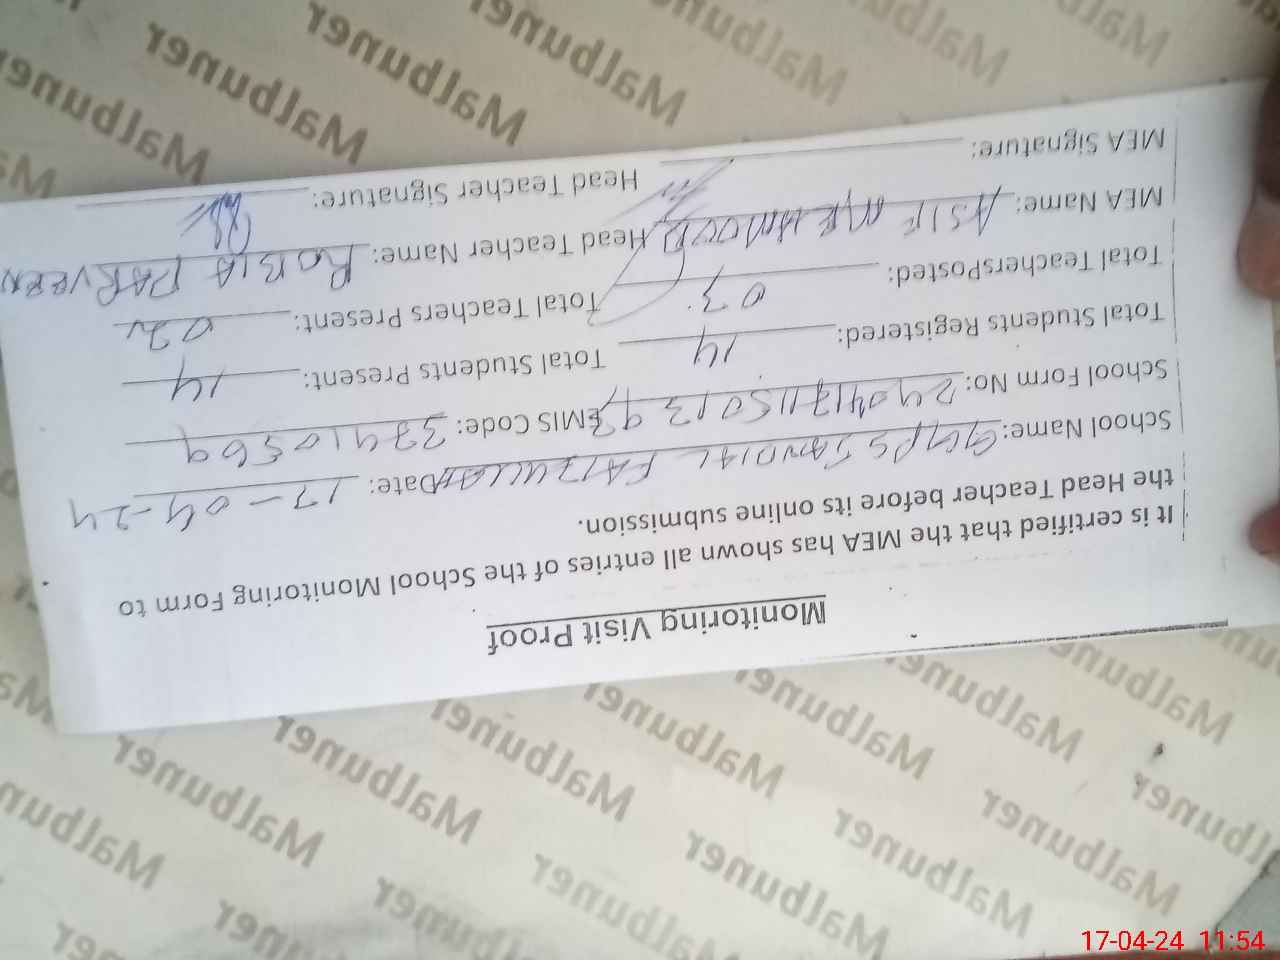 Monitoring Visit Proof
It is certified that the MEA has shown all entries of the School Monitoring Form to
the Head Teacher before its online submission.
School Name: GGPS JANDIAL FAIZULLAH Date: 17-04-24
School Form No: EMIS Code: 37410569
Total Students Registered: 14 Total Students Present: 14
Total TeachersPosted: 03 Total Teachers Present: 02
MEA Name: ASIF MEHMOOD Head Teacher Name: ROBIA PARVEEN
MEA Signature: Head Teacher Signature:
17-04-24 11:54